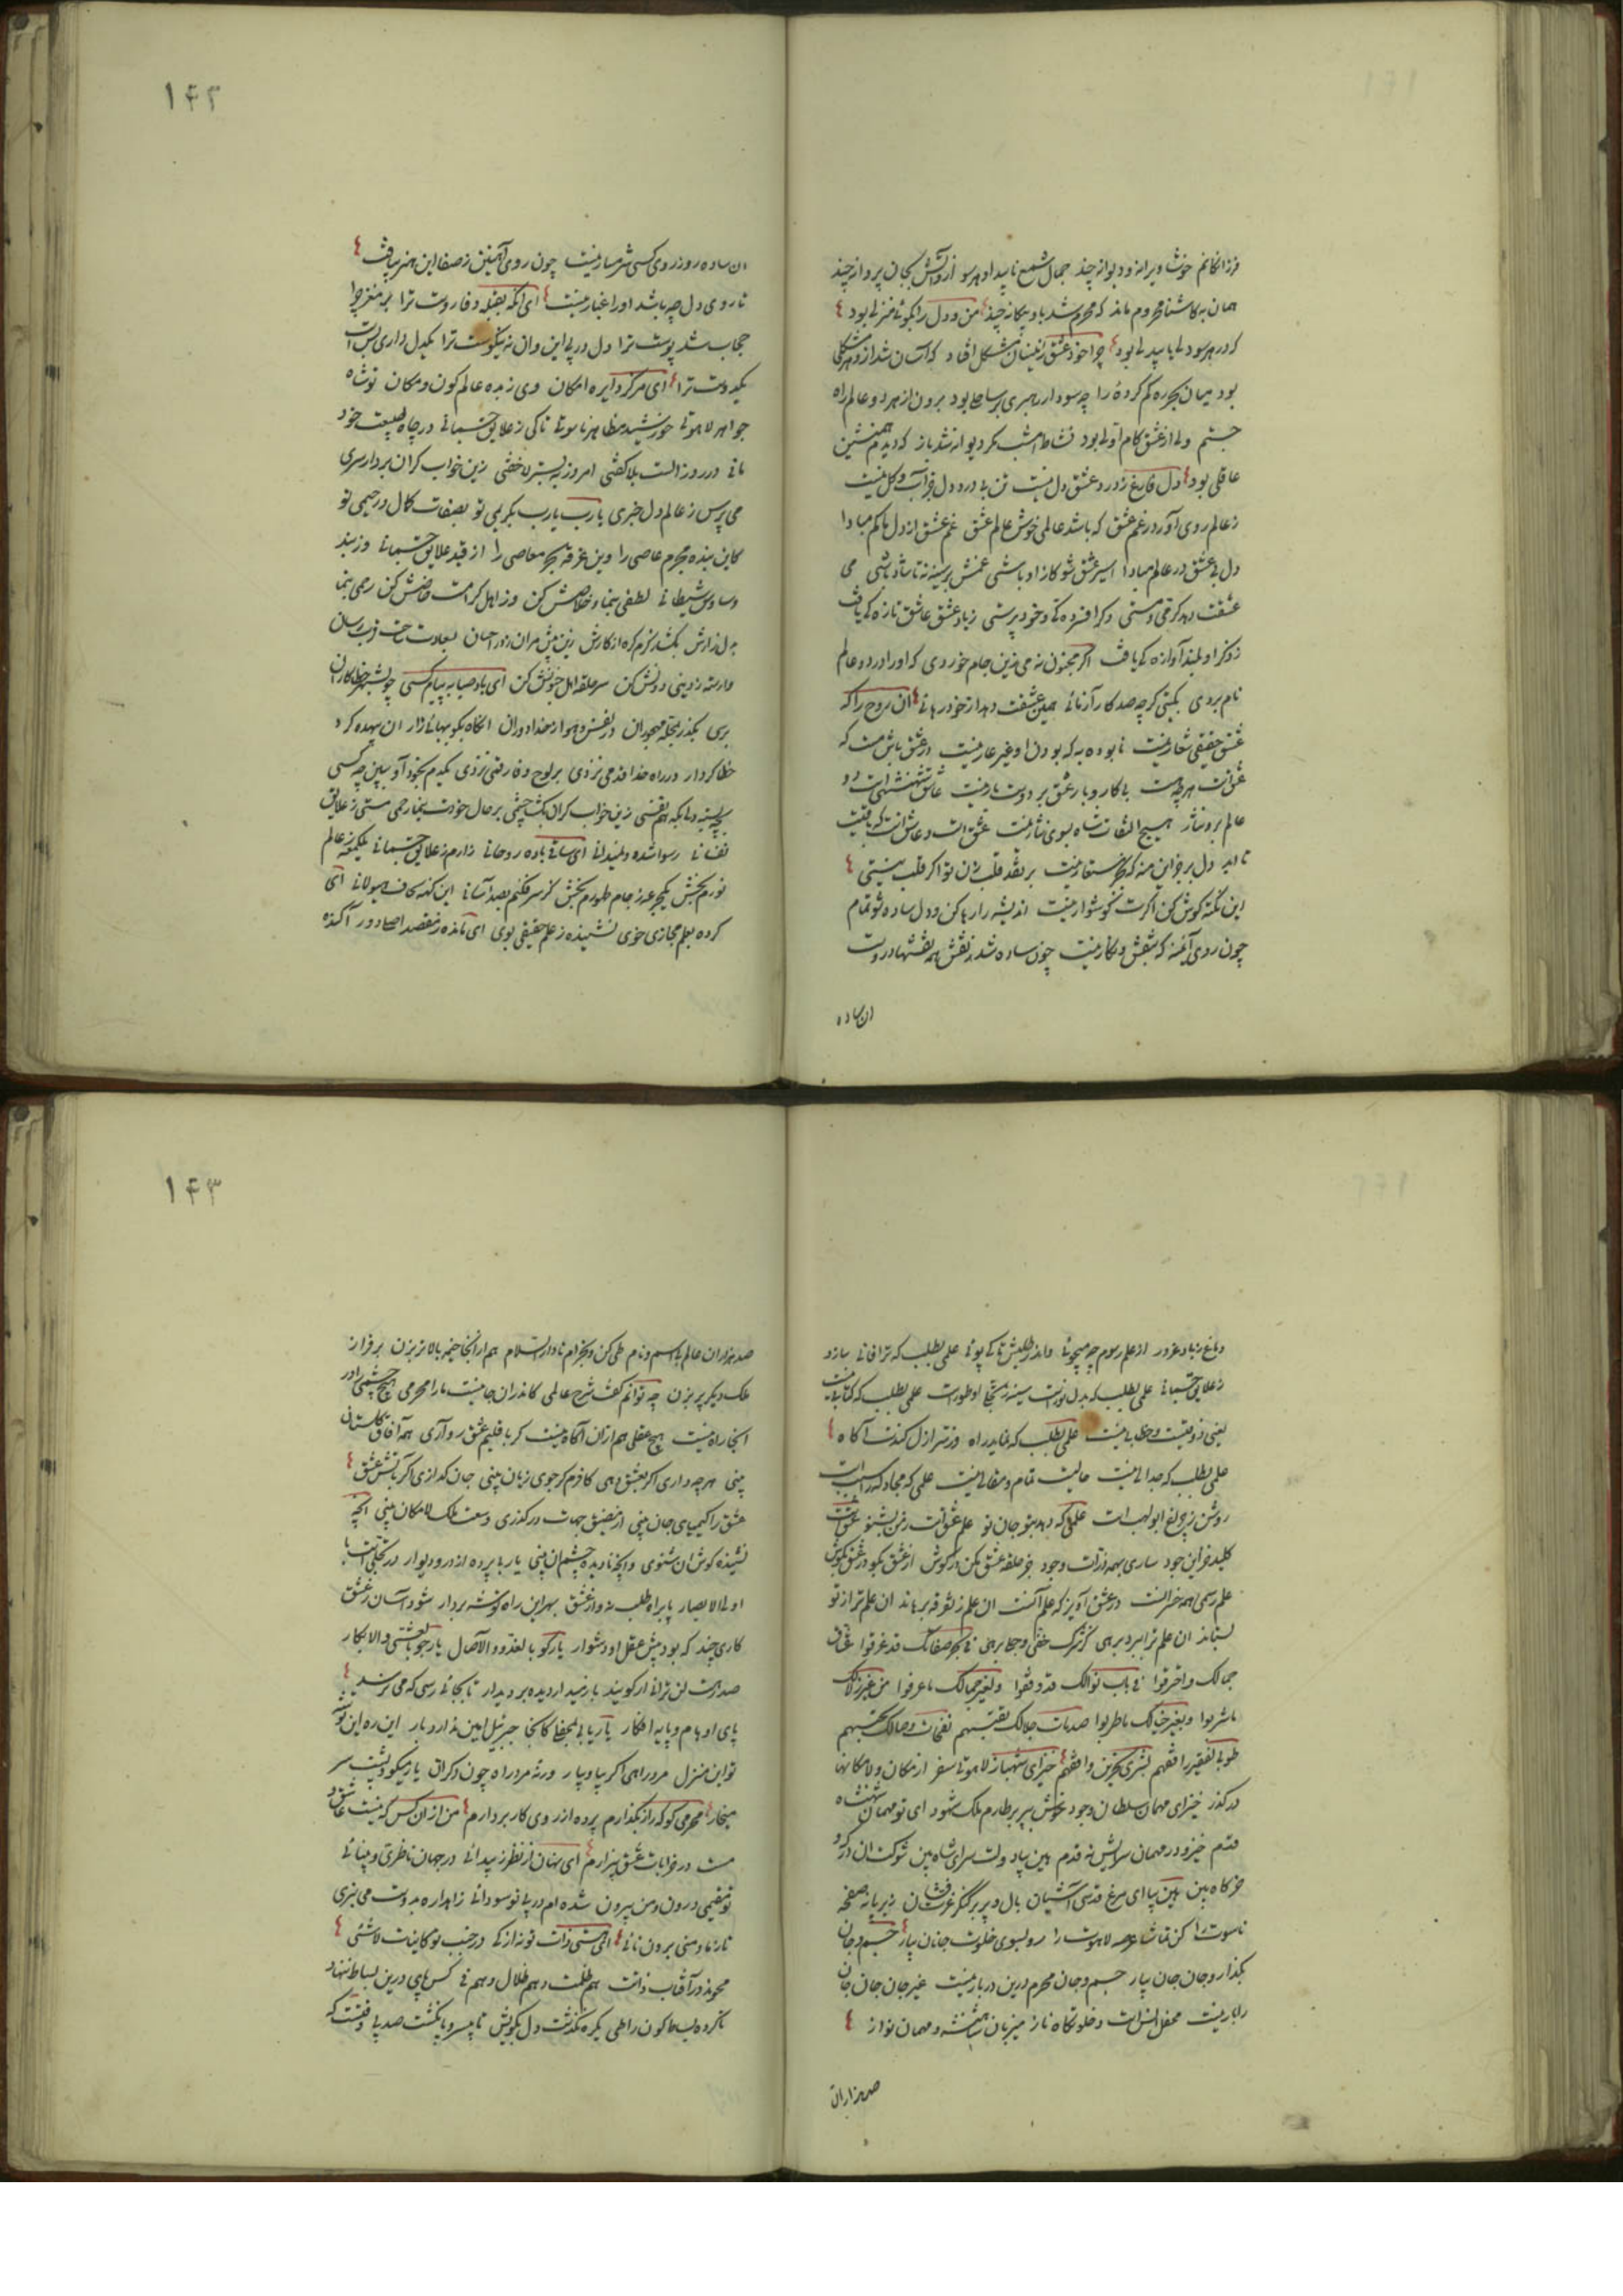 فرزانگانم خوش ویرانه و دیوانه چند جمال شمع ناپیدا و هر سو از آتش بجان پروانه چند
همان به کاشنا محروم ماند که محرم شد باو بیگانه چند من و دل را بکوئی منزلی بود
که در هر سو دلی با بیدلی بود چرا خود عشق زینسان مشکل افتاد که آسان شد ازو هر مشکلی
بود میان بحر ره گم کرده را چه سود ار رهبری بر ساحلی بود برون از هر دو عالم راه
جستم ولی از عشق کام اولی بود نشاط امشب مگر دیوانه شد باز که دیدم همنشین
عاقلی بود دل فارغ ز درد عشق دل نیست تن بی درد دل جز آب و گل نیست
ز عالم روی آور در غم عشق که باشد عالمی خوش عالم عشق غم عشق از دل ما کم مبادا
دل بی عشق در عالم مبادا اسیر عشق شو کازاد باشی غمش بر سینه نه تا شاد باشی می
عشقت دهد گرمی و مستی دگر افسردگی و خودپرستی ز یاد عشق عاشق تازگی یافت
ز ذکر او بلند آوازگی یافت اگر مجنون نه می زین جام خوردی که او را در دو عالم
نام بردی بگیتی گرچه صد کار آزمائی همین عشقت دهد از خود رهائی آن روح را که
عشق حقیقی شعار نیست نابوده به که بودن او غیر عار نیست در عشق باش مست که
عشقست هر چه هست بی کار و بار عشق بر دوست بار نیست عاشق شهنشهیست دو
عالم برو نثار هیچ التفات شاه بسوی نثار نیست عشق است و عاشق است که باقیست
تا ابد دل بر جز این منه که بجز مستعار نیست بر نقد قلب زن تو اگر قلب نیستی
این نکته گوش کن اگرت گوشوار نیست اندیشه را رها کن و دل ساده شو تمام
چون روی آینه که بنقش و نگار نیست چون ساده شد ز نقش همه نقشها دروست
آن ساده
۱۴۲
آن ساده رو ز روی کسی شرمسار نیست چون روی آهنین ز صفا این هنر بیافت
تا روی دل چه باشد او را غبار نیست ای آنکه بقبله وفا روست ترا بر مغز چرا
حجاب شد پوست ترا دل در پی این و آن نه نیکوست ترا یکدل داری بس است
یکدوست ترا ای مرکز دایره امکان وی زبده عالم کون و مکان تو شاه
جواهر لاهوتی خورشید مظاهر ناسوتی تا کی ز علایق جسمانی در چاه طبیعت خود
مانی در روز الست بلا گفتی امروز به بستر لا خفتی زین خواب گران بردار سری
می پرس ز عالم دل خبری یا رب یا رب بکریمی تو بصفات کمال رحیمی تو
کاین بنده مجرم عاصی را وین غرقه بحر معاصی را از قید علایق جسمانی وز بند
وساوس شیطانی لطفی بنما و خلاصش کن وز اهل کرامت خاصش کن رحمی بنما
وارسته ز دینی دونش کن سرحلقه اهل جنونش کن ای باد صبا به پیام کسی چو بشهر خطاکاران
برسی بگذر بمحله مهجوران در نفس و هوا ز خدا دوران آنگاه بگو بهائی زار آن بیهده کرد
خطاکردار در راه خدا قدمی نزدی بر لوح وفا رقمی نزدی یکدم بخود آ و ببین چه کسی
بچه بسته دل بکه هم نفسی زین خواب گران بگشا چشمی بر حال خودت بنما رحمی مستی ز علایق
نفسانی رسوا شده و نمیدانی ای ساقی باده روحانی زارم ز علایق جسمانی یکلمعه ز عالم
نورم بخش یکجرعه ز جام طهورم بخش کز سر فکنم بصد آسانی این کهنه لحاف هیولانی ای
کرده بعلم مجازی خوی نشنیده ز علم حقیقی بوی ای مانده ز مقصد اصلی دور آکنده
دماغ ز باد غرور از علم رسوم چه میجوئی واندر طلبش تا کی پوئی علمی بطلب که ترا فانی سازد
ز علایق جسمانی علمی بطلب که بدل نورست سینه ز تجلی او طورست علمی بطلب که کتابی نیست
یعنی ذوقیست و خطابی نیست علمی بطلب که نماید راه وز سر ازل کندت آگاه
علمی بطلب که جدالی نیست حالیست تمام و مقالی نیست علمی که مجادله را سبب است
نورش ز چراغ ابولهب است علمی که دهد بتو جان نو علم عشق است ز من بشنو عشق است
کلید خزاین جود ساری بهمه ذرات وجود جز حلقه عشق مکن در گوش از عشق بگو در عشق بکوش
علم رسمی همه خسرانست در عشق آویز که علم آنست آن علم ز تفرقه برهاند آن علم ترا ز تو
بستاند آن علم ترا ببرد برهی کز شرک خفی و جلی برهی فی بحر صفاتک قد غرقوا عشاق
جمالک و احترقوا فی باب نوالک قد وقفوا و لغیر جمالک ما عرفوا من غیر زلالک
ما شربوا و بغیر خیالک ما طربوا صدمات جلالک تفنیهم نفحات وصالک تحییهم
طوبی لفقیر رافقهم بشری لحزین وافقهم خیز ای شهباز لاهوتی سفر از مکان و لامکانها
در گذر خیز ای مهمان سلطان وجود خوش بپر بر طارم ملک شهود ای تو مهمان شهنشاه
قدم خیز و در مهمان سرایش نه قدم هین بیا دولت سرای شاه بین شوکت آن درگه و
خرگاه بین هین بیا ای مرغ قدسی آشیان بال و پر بر کنگر عرش فشان زیر پا نه صفحه
ناسوت را کن تماشا عرصه لاهوت را رو بسوی خلوت جانان بیار جسم و جان
بگذار و جان جان بیار جسم و جان محرم درین دربار نیست غیر جان جان جان
را بار نیست محفل انس است و خلوتگاه ناز میزبان شاهنشه و مهمان نواز
صد هزاران
۱۴۳
صد هزاران عالم بی اسم و نام طی کن و بخرام تا دارالسلام هم از آنجا خیمه بالاتر بزن بر فراز
ملک دیگر پر بزن چه توانم گفت شرح عالمی کاندران جا نیست ما را محرمی هیچ چشمی را در
آنجا راه نیست هیچ عقلی هم از آن آگاه نیست گر باقلیم عشق رو آری همه آفاق گلستان
بینی هر چه داری اگر بعشق دهی کافرم گر جوی زیان بینی جان گدازی اگر بآتش عشق
عشق را کیمیای جان بینی از مضیق جهات در گذری وسعت ملک لامکان بینی آنچه
نشنیده گوش آن شنوی وآنچه نادیده چشم آن بینی یار بی پرده از در و دیوار در تجلی است یا
اولی الابصار پا براه طلب نه و از عشق بهر این راه توشه بردار شود آسان ز عشق
کاری چند که بود پیش عقل او دشوار یار گو بالغدو و الآصال یار جو بالعشی و الابکار
صد رهت لن ترانی ار گویند باز میدار دیده بر دیدار تا بجائی رسی که می نرسد
پای اوهام و پایه افکار یار یابی بمحفلی کانجا جبرئیل امین ندارد بار این ره این توشه
تو این منزل مرد راهی اگر بیا و بیار ورنه مرد راه چون دگران یار میگو و پشت سر
میخار محرمی کو که راز بگذارم پرده از روی کار بردارم من از آن کس که نیست عاشق و
مست در خرابات عشق بیزارم ای نهان از نظر ز پیدائی در جهان ناظری و بینائی
تو مقیمی درون و من بیرون شده ام در پی تو سودائی زاهدا ره بدوست می نبری
تا ز ما و منی برون نائی ای هستی ذات تو نه از کی در جنب تو کاینات لا شیئی
محو ند در آفتاب ذاتت هم ظلمت و هم ظلال و هم فی کس پای درین بساط ننهاد
ناکرده بساط کون را طی یکره نگذشت دل بکویش تا بیسر و پا نگشت صد پی وقتست که